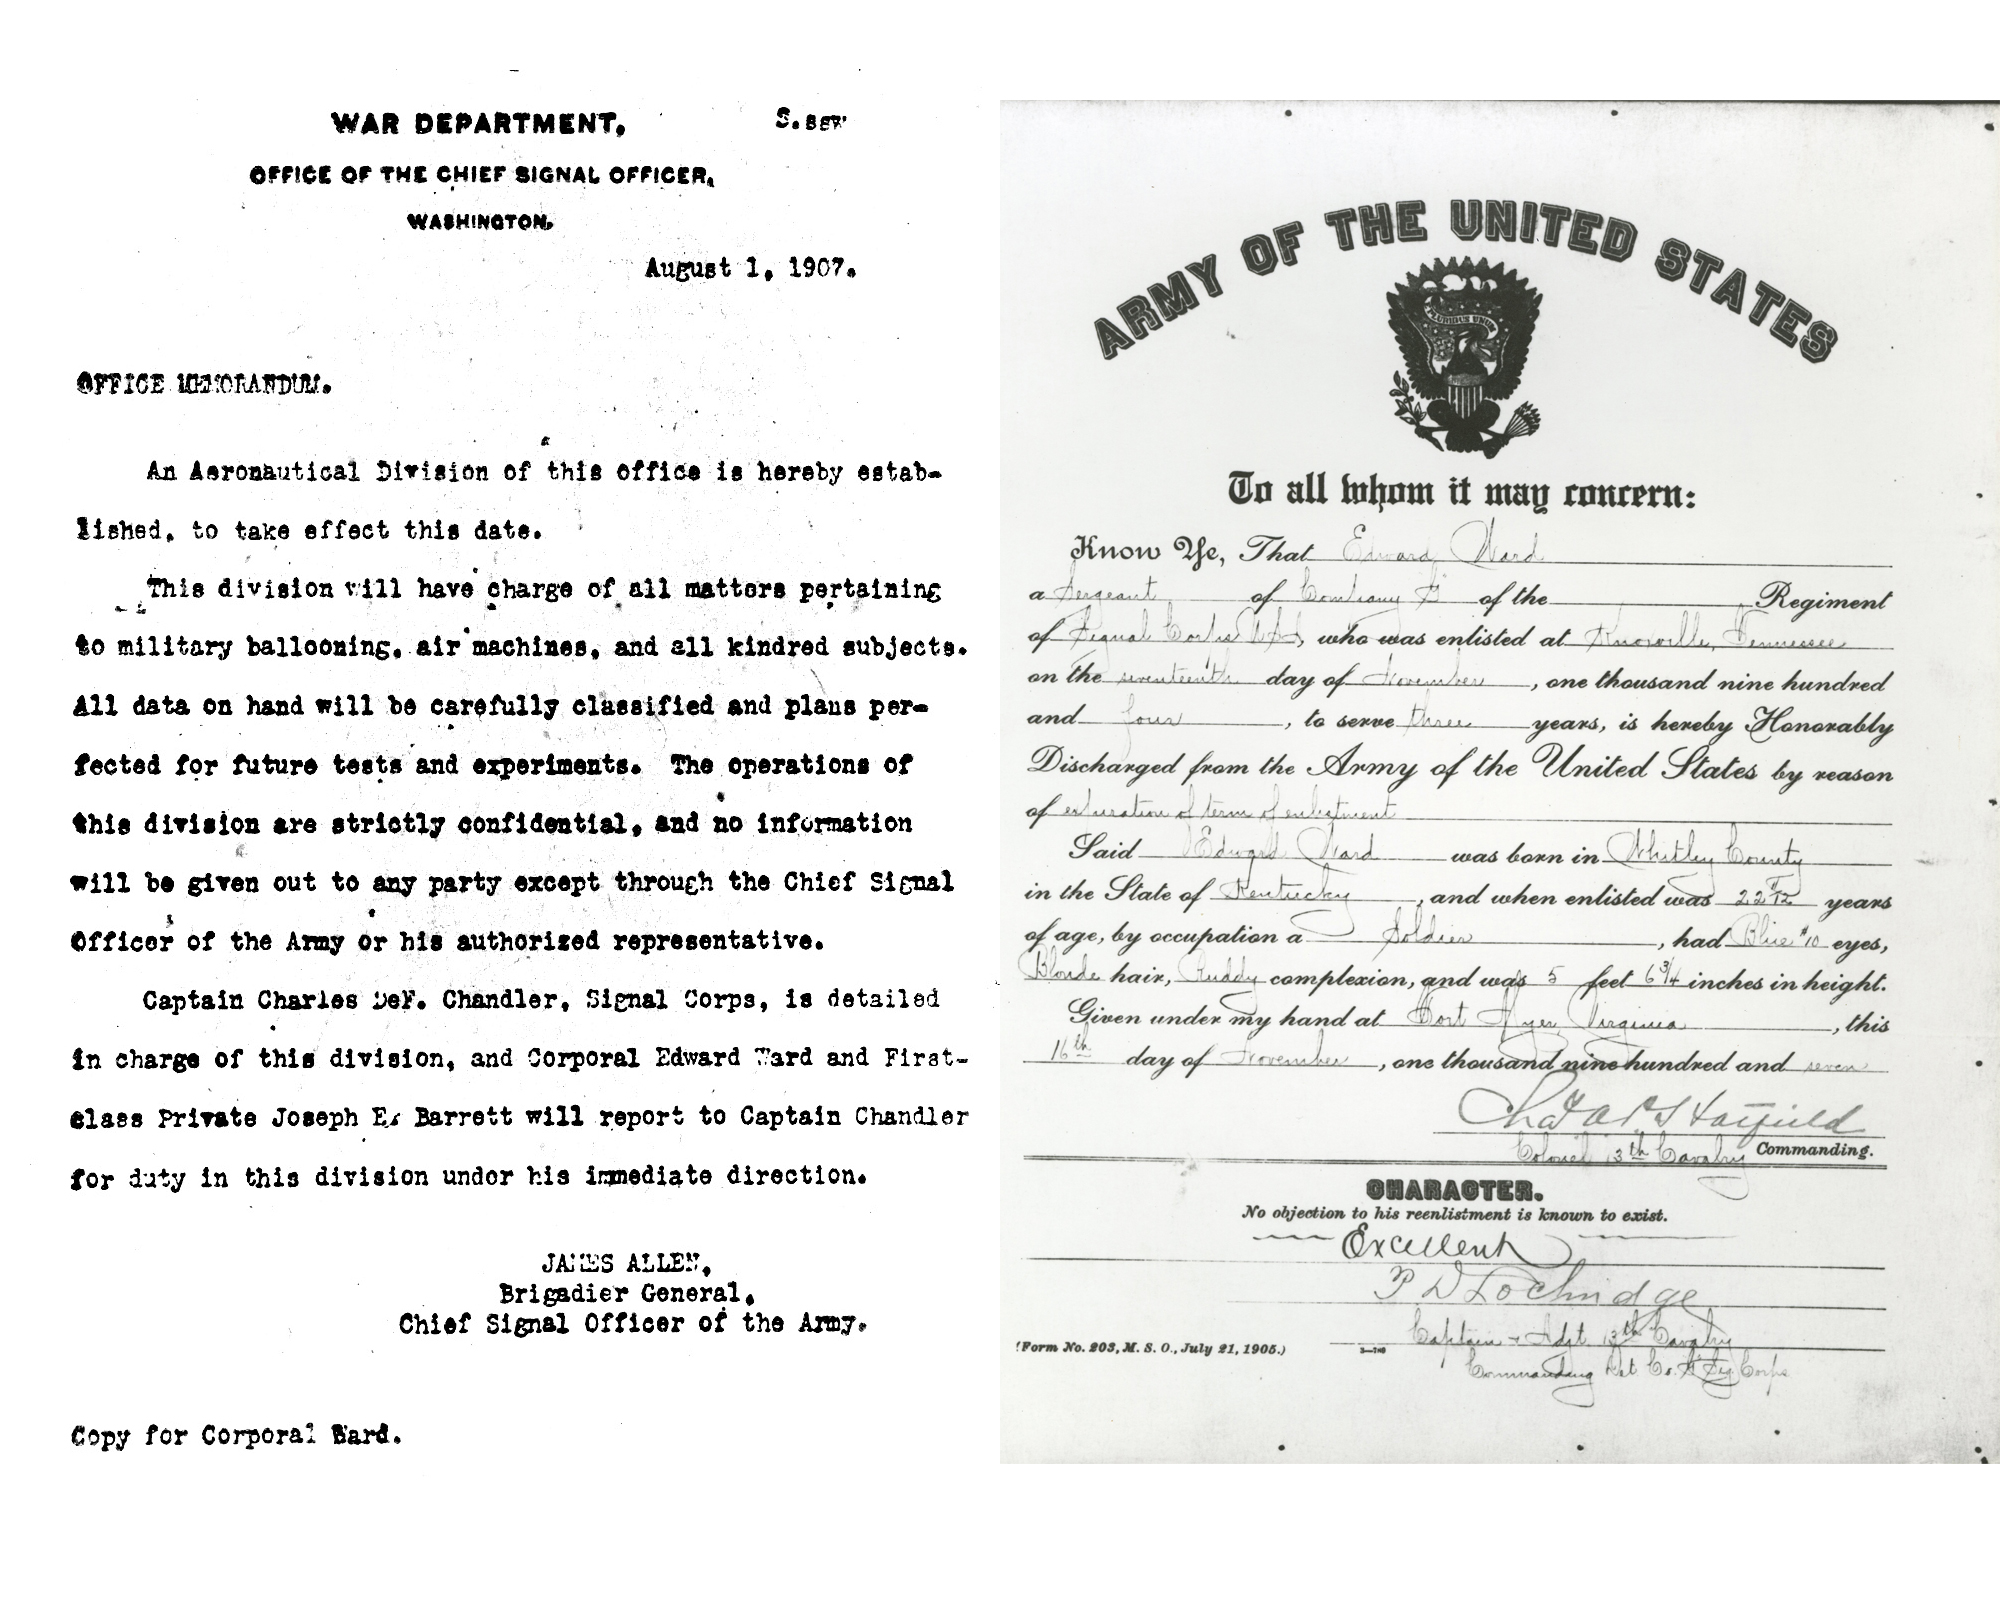 WAR DEPARTMENT,
OFFICE OF THE CHIEF SIGNAL OFFICER,
WASHINGTON.
August 1, 1907.
OFFICE MEMORANDUM.
An Aeronautical Division of this office is hereby estab-
lished, to take effect this date.
This division will have charge of all matters pertaining
to military ballooning, air machines, and all kindred subjects.
All data on hand will be carefully classified and plans per-
fected for future tests and experiments. The operations of
this division are strictly confidential, and no information
will be given out to any party except through the Chief Signal
Officer of the Army or his authorized representative.
Captain Charles DeF. Chandler, Signal Corps, is detailed
in charge of this division, and Corporal Edward Ward and First-
class Private Joseph E. Barrett will report to Captain Chandler
for duty in this division under his immediate direction.
JAMES ALLEN,
Brigadier General,
Chief Signal Officer of the Army.
Copy for Corporal Ward.
ARMY OF THE UNITED STATES
To all whom it may concern:
Know Ye, That Edward Ward
a Sergeant of Company of the Regiment
of Signal Corps USA, who was enlisted at Knoxville, Tennessee
on the seventeenth day of November, one thousand nine hundred
and four, to serve three years, is hereby Honorably
Discharged from the Army of the United States by reason
of expiration of term of enlistment
Said Edward Ward was born in Whitley County
in the State of Kentucky, and when enlisted was years
of age, by occupation a Soldier, had Blue #10 eyes,
Blonde hair, Ruddy complexion, and was 5 feet 6 3/4 inches in height.
Given under my hand at Fort Myer Virginia, this
16th day of November, one thousand nine hundred and seven
Hatfield
Colonel 13th Cavalry Commanding.
CHARACTER.
No objection to his reenlistment is known to exist.
Excellent
Lochridge
Captain & Adjt 13th Cavalry
Commanding Det Co. Sig Corps
(Form No. 203, M. S. O., July 21, 1905.)